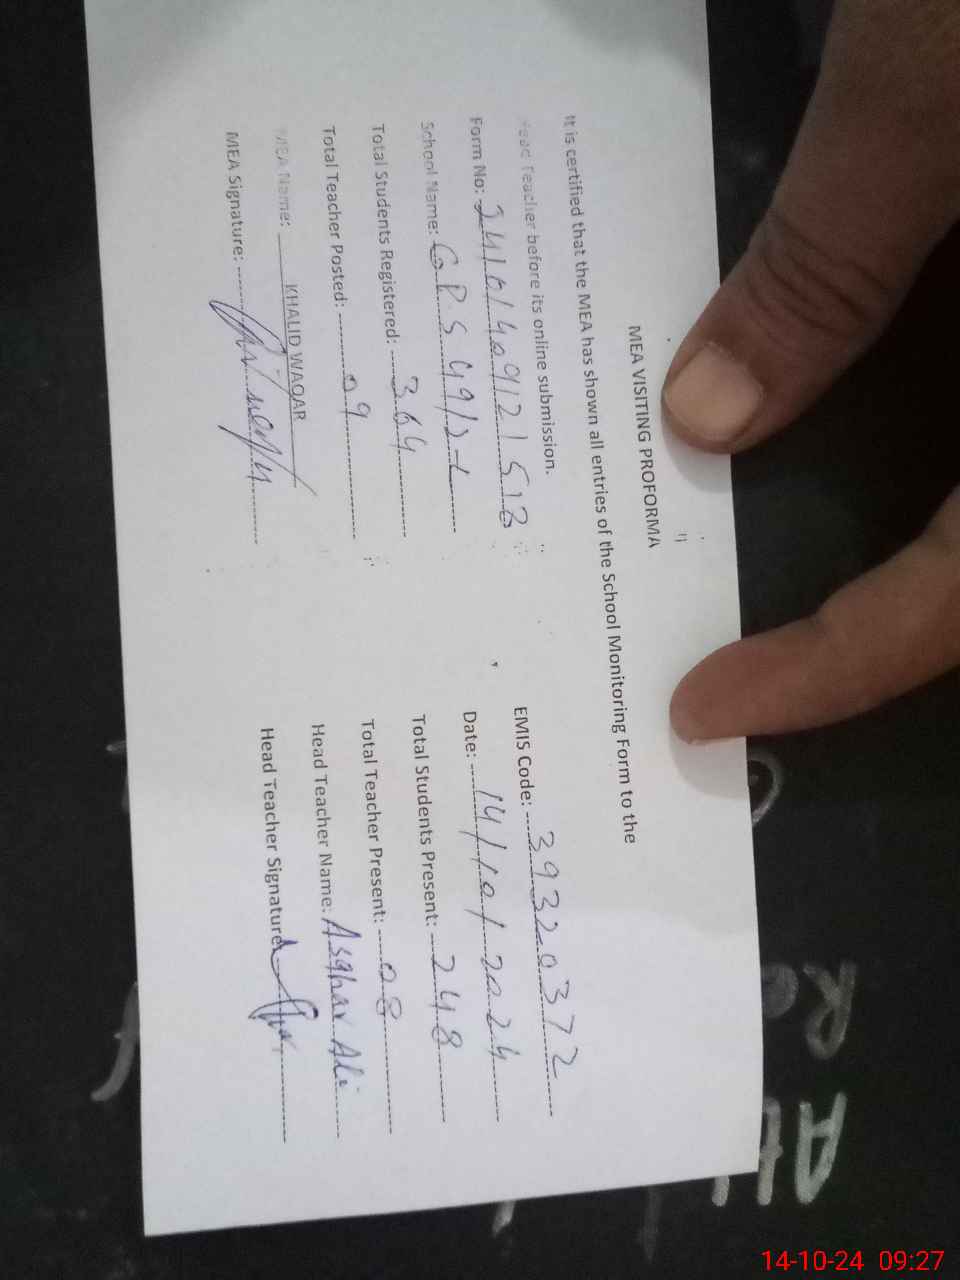 MEA VISITING PROFORMA
It is certified that the MEA has shown all entries of the School Monitoring Form to the
Head Teacher before its online submission.
Form No: 24101409121513 EMIS Code: 39320372
School Name: GPS 49/2-L Date: 14/10/2024
Total Students Registered: 364 Total Students Present: 248
Total Teacher Posted: 09 Total Teacher Present: 08
MEA Name: KHALID WAQAR Head Teacher Name: Asghar Ali
MEA Signature: Head Teacher Signature
14-10-24 09:27